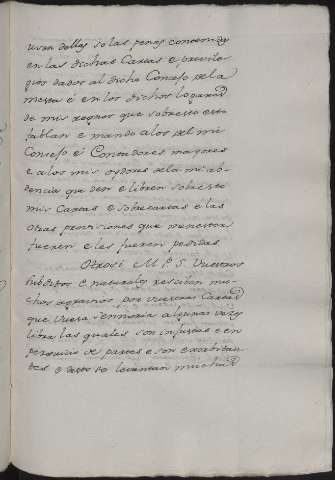 usan dellas so las penas contenidas
en las dichas Cartas e previle-
gios dados al dicho Concejo de la
mesta é en los dichos logares
de mis regnos que sobresto esto
fablan e mando a los del mi
Consejo é Contadores mayores
e a los mis oydores de la mi ab-
dencia que den e libren sobresto
mis Cartas e sobrecartas e las
otras provisiones que menester
fueren e les fueren pedidas
Otrosi M. P. S. Vuestros
subditos e naturales resciben mu-
chos agravios por vuestras Cartas
que vuesa Sennoria algunas vezes
libra las quales son injustas e en
perjuicio de partes e son exorbitan-
tes e desto se levantan muchas